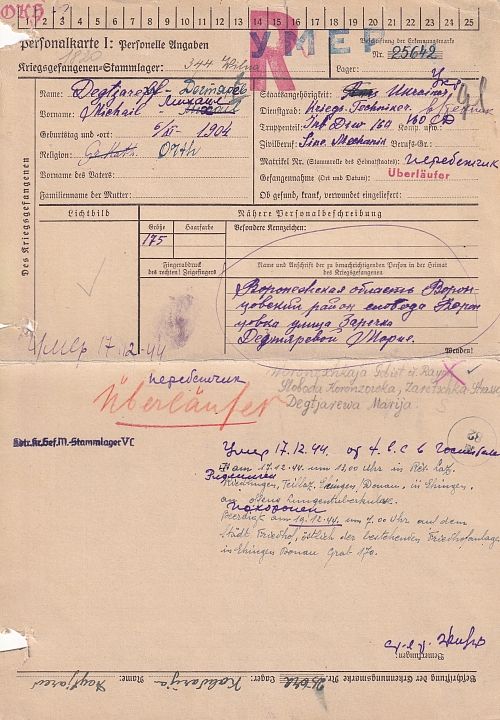 ОКБ
1 2 3 4 5 6 7 8 9 10 11 12 13 14 15 16 17 18 19 20 21 22 23 24 25
Personalkarte I: Personelle Angaben
Kriegsgefangenen-Stammlager: 344 Wilna
R
УМЕР
Beschriftung der Erkennungsmarke
Nr. 25642
Lager:
Des Kriegsgefangenen
Name: Degtjarew - Дегтярев
Vorname: Michail - Михаил
Geburtstag und -ort: 6/XI - 1904
Religion: Orth
Vorname des Vaters:
Familienname der Mutter:
Staatsangehörigkeit: Ukrainer
Dienstgrad: Kriegs-Techniker
Truppenteil: Inf Div 160 160 СД Komp. usw.:
Zivilberuf: Mechanik Berufs-Gr.:
Matrikel Nr. (Stammrolle des Heimatstaates): перебежчик
Gefangennahme (Ort und Datum): Überläufer
Ob gesund, krank, verwundet eingeliefert:
Lichtbild
Nähere Personalbeschreibung
Größe Haarfarbe Besondere Kennzeichen:
175
Fingerabdruck
des rechten! Zeigefingers
Name und Anschrift der zu benachrichtigenden Person in der Heimat
des Kriegsgefangenen
Воронежская область Ворон-
цовский район слобода Ворон-
цовка улица Заречка
Дегтяревой Марие.
Wenden!
Умер 17.12.44
перебежчик
Überläufer
Woroneschkaja Gebiet u. Rayon
Sloboda Woronzowka, Zaretschka Strasse
Degtjarewa Marija
Kdtr.Kr.Gef.M.-Stammlager V
Умер 17.12.44. от т.б.с в госпитале
Am 17.12.44. um 12,00 Uhr in Res. Laz.
Ридлинген
Riedlingen, Teillaz. Ehingen/Donau, in Ehingen,
an offener Lungentuberkulose.
похоронен
Beerdigt am 19.12.44 um 7.00 Uhr auf dem
Städt. Friedhof, östlich der bestehenden Friedhofanlage
in Ehingen Donau Grab 170.
Bemerkungen:
Beschriftung der Erkennungsmarke Nr. 25642 Lager: Kalvarija Name: Degtjarew